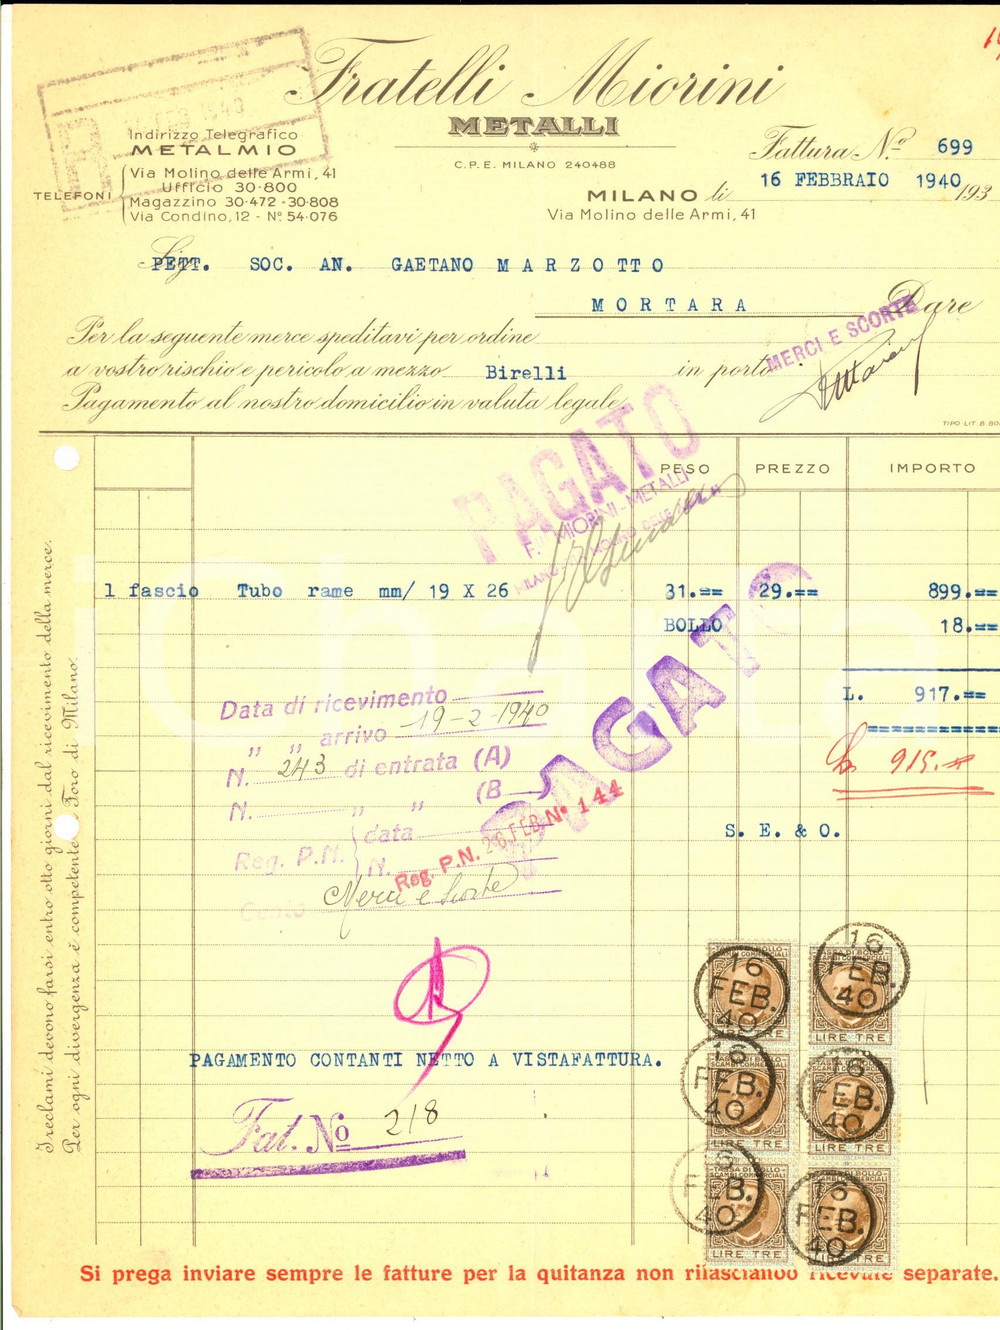 Fratelli Miorini
METALLI
C.P.E. MILANO 240488
Indirizzo Telegrafico
METALMIO
TELEFONI
Via Molino delle Armi, 41
Ufficio 30-800
Magazzino 30-472 - 30-808
Via Condino, 12 - No 54-076
Fattura N.o 699
16 FEBBRAIO 1940 193
MILANO li
Via Molino delle Armi, 41
PETT. SOC. AN. GAETANO MARZOTTO
MORTARA
Dare
MERCI E SCORTE
Per la seguente merce speditavi per ordine
a vostro rischio e pericolo a mezzo Birelli in porto
Pagamento al nostro domicilio in valuta legale
PESO PREZZO IMPORTO
PAGATO
MIORINI - METALLI
1 fascio Tubo rame mm/ 19 X 26 31.== 29.== 899.==
BOLLO 18.==
L. 917.==
============
915.=
PAGATO
Data di ricevimento
" " arrivo 19-2-1940
N. 243 di entrata (A)
N. " " (B
Reg. P.N. data
N.
Conto Merci e Scorte
Reg. P.N. 26 FEB No 144
S. E. & O.
PAGAMENTO CONTANTI NETTO A VISTAFATTURA.
Fat. No 218
I reclami devono farsi entro otto giorni dal ricevimento della merce.
Per ogni divergenza è competente il Foro di Milano.
16 FEB. 40
16 FEB. 40
16 FEB. 40
16 FEB. 40
16 FEB. 40
16 FEB. 40
TASSA DI BOLLO
SCAMBI COMMERCIALI
LIRE TRE
LIRE TRE
LIRE TRE
LIRE TRE
LIRE TRE
LIRE TRE
Si prega inviare sempre le fatture per la quitanza non rilasciando ricevute separate.